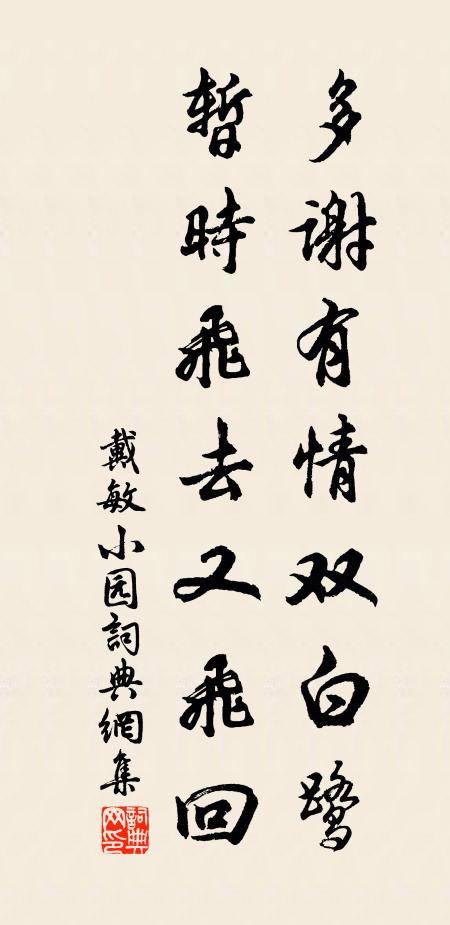 多谢有情双白鹭
暂時飛去又飛回
戴敏小园詞典網集
詞典网印